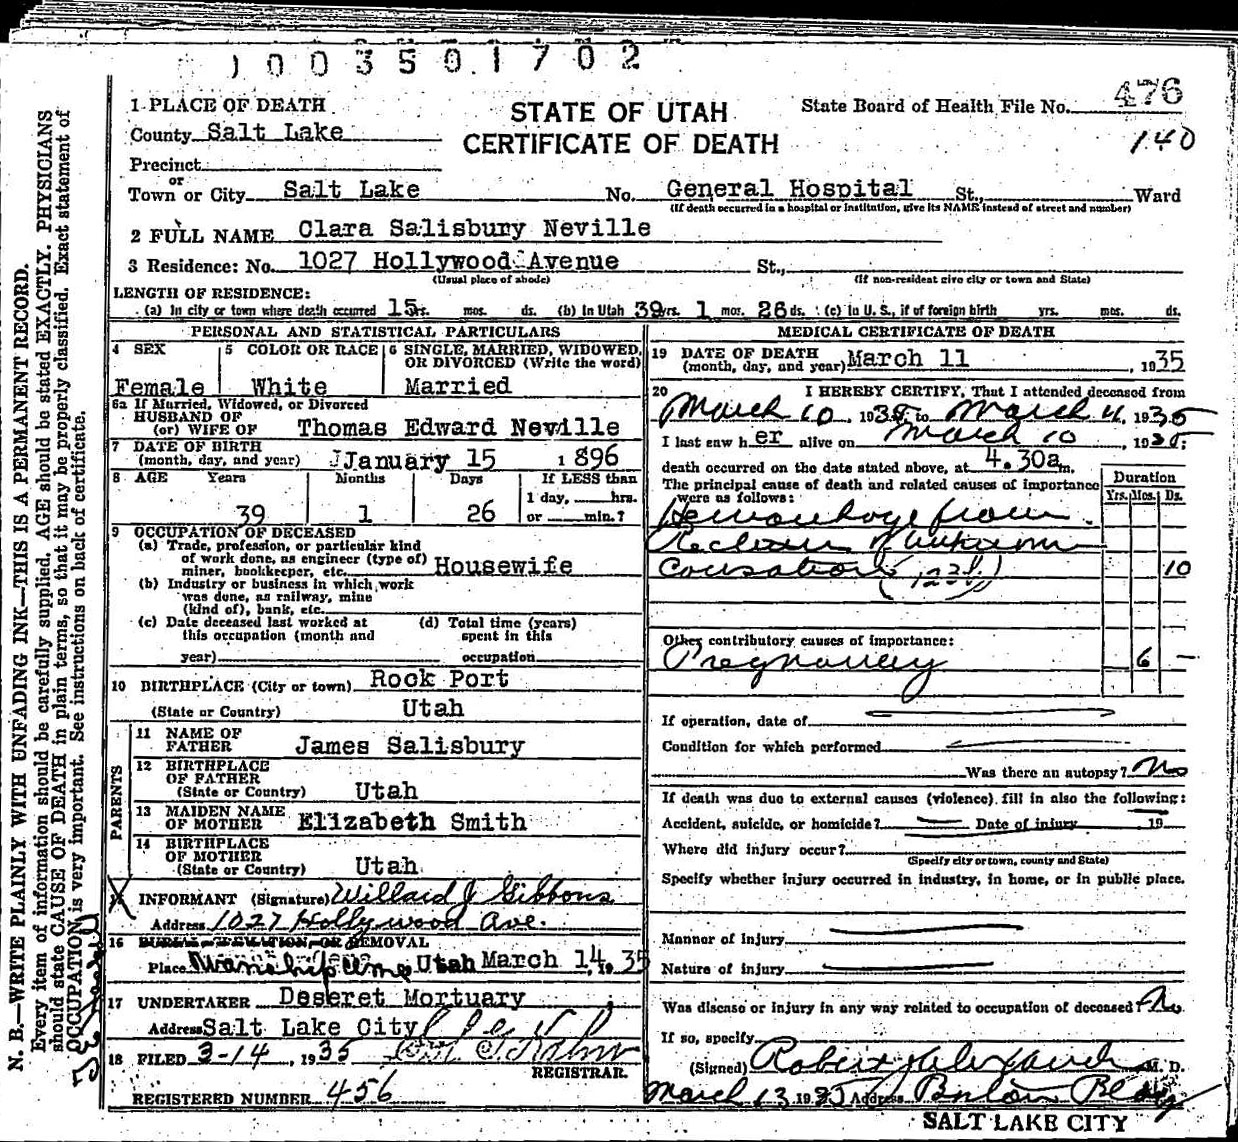 1003501702
1 PLACE OF DEATH
STATE OF UTAH
CERTIFICATE OF DEATH
State Board of Health File No. 476
140
County Salt Lake
Precinct
or
Town or City Salt Lake No. General Hospital St., Ward
(If death occurred in a hospital or institution, give its NAME instead of street and number)
2 FULL NAME Clara Salisbury Neville
3 Residence: No. 1027 Hollywood Avenue St.,
(Usual place of abode) (If non-resident give city or town and State)
LENGTH OF RESIDENCE:
(a) In city or town where death occurred 15 yrs. mos. ds. (b) In Utah 39 yrs. 1 mos. 26 ds. (c) in U. S., if of foreign birth yrs. mos. ds.
PERSONAL AND STATISTICAL PARTICULARS
4 SEX 5 COLOR OR RACE 6 SINGLE, MARRIED, WIDOWED, OR DIVORCED (Write the word)
Female White Married
6a If Married, Widowed, or Divorced
HUSBAND OF
(or) WIFE OF Thomas Edward Neville
7 DATE OF BIRTH
(month, day, and year) JJanuary 15 1896
8 AGE Years Months Days If LESS than
1 day, hrs.
39 1 26 or min.?
9 OCCUPATION OF DECEASED
(a) Trade, profession, or particular kind
of work done, as engineer (type of)
miner, bookkeeper, etc. Housewife
(b) Industry or business in which work
was done, as railway, mine
(kind of), bank, etc.
(c) Date deceased last worked at (d) Total time (years)
this occupation (month and spent in this
year) occupation
10 BIRTHPLACE (City or town) Rock Port
(State or Country) Utah
PARENTS
11 NAME OF
FATHER James Salisbury
12 BIRTHPLACE
OF FATHER
(State or Country) Utah
13 MAIDEN NAME
OF MOTHER Elizabeth Smith
14 BIRTHPLACE
OF MOTHER
(State or Country) Utah
X INFORMANT (Signature) Willard J Gibbons
Address 1027 Hollywood Ave.
16 BURIAL, CREMATION OR REMOVAL
Place Wanship Utah March 14, 1935
17 UNDERTAKER Deseret Mortuary
Address Salt Lake City
18 FILED 3-14, 1935
REGISTRAR.
REGISTERED NUMBER 456
MEDICAL CERTIFICATE OF DEATH
19 DATE OF DEATH
(month, day, and year) March 11, 1935
20 I HEREBY CERTIFY, That I attended deceased from
March 10, 1935 to March 11, 1935
I last saw her alive on March 10, 1935;
death occurred on the date stated above, at 4.30a m.
The principal cause of death and related causes of importance
were as follows:
Duration
Yrs. Mos. Ds.
Hemorrhage from
Rectum of unknown
Causation (123) 10
Other contributory causes of importance:
Pregnancy 6 —
If operation, date of
Condition for which performed
Was there an autopsy? No
If death was due to external causes (violence) fill in also the following:
Accident, suicide, or homicide? Date of injury 19
Where did injury occur?
(Specify city or town, county and State)
Specify whether injury occurred in industry, in home, or in public place.
Manner of injury
Nature of injury
Was disease or injury in any way related to occupation of deceased? No
If so, specify
(Signed) Robert Alexander M. D.
March 13 1935 Address Boston Bldg
SALT LAKE CITY
N. B.—WRITE PLAINLY WITH UNFADING INK—THIS IS A PERMANENT RECORD.
Every item of information should be carefully supplied. AGE should be stated EXACTLY. PHYSICIANS
should state CAUSE OF DEATH in plain terms, so that it may be properly classified. Exact statement of
OCCUPATION is very important. See instructions on back of certificate.